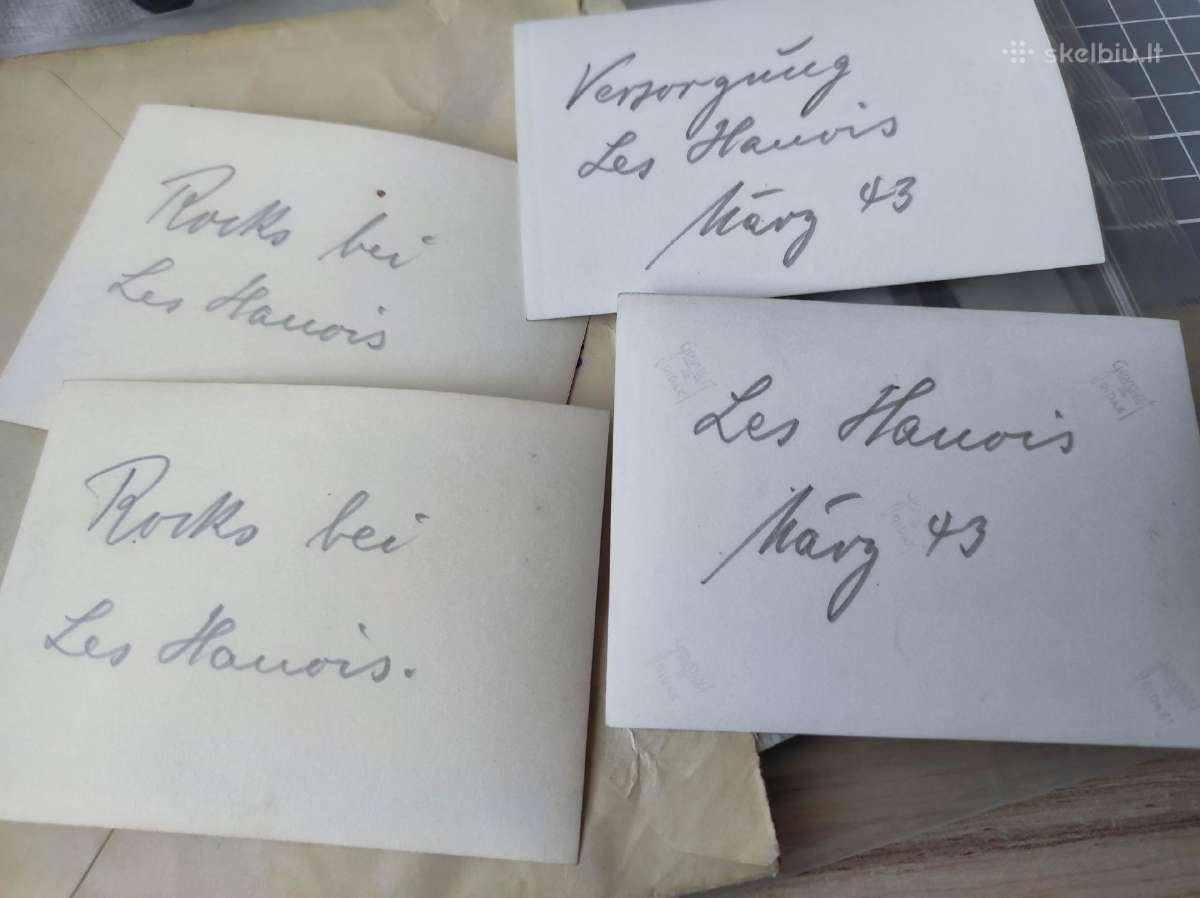 skelbiu.lt
Versorgung
Les Hanois
März 43
Rocks bei
Les Hanois
Rocks bei
Les Hanois.
Les Hanois
März 43